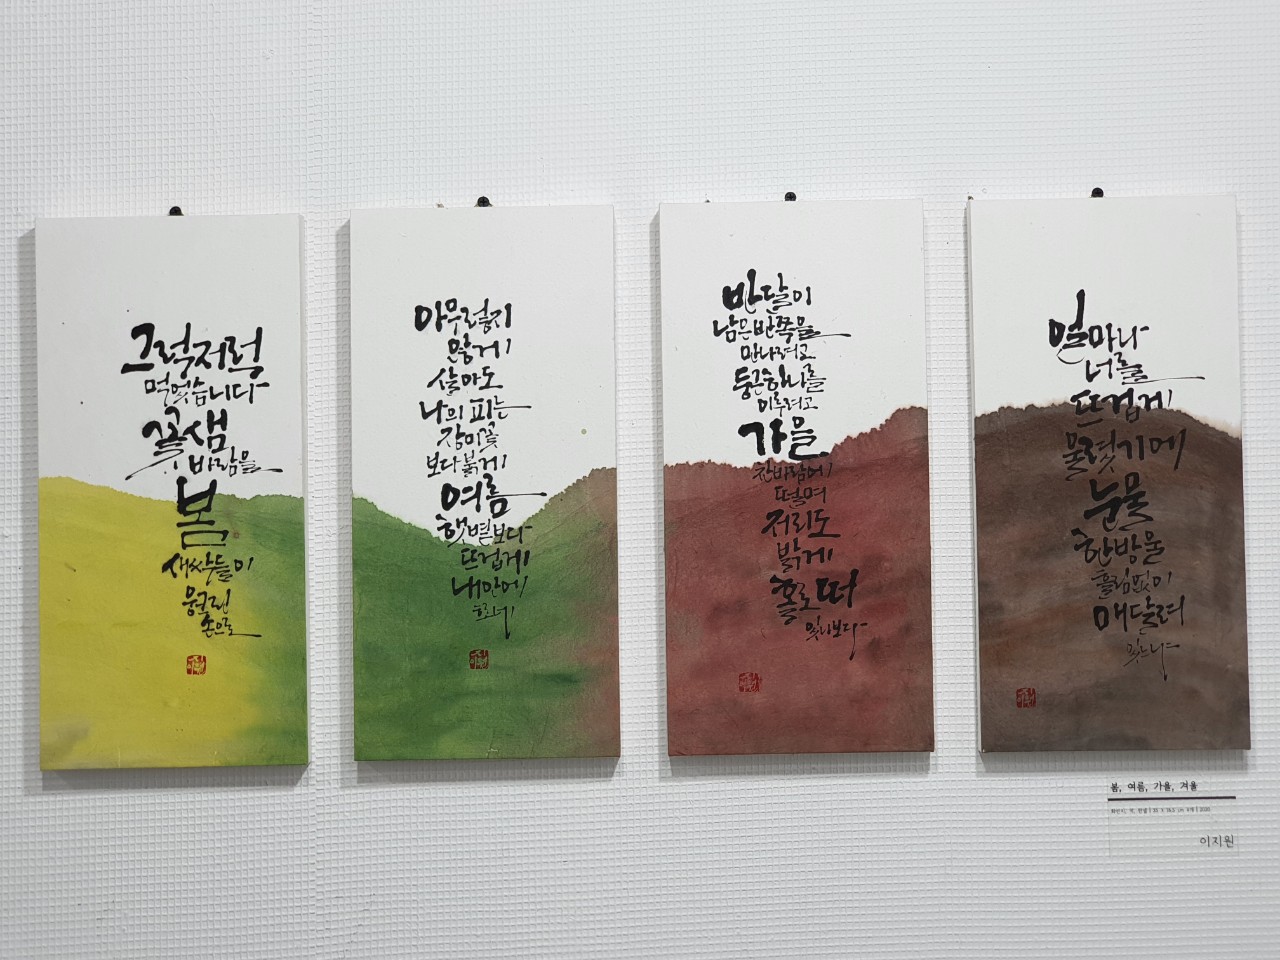 그럭저럭
먹었습니다
꽃샘
바람을
봄
새싹들이
웅크린
손으로
아무렇지
않게
살아도
나의 피는
장미꽃
보다 붉게
여름
햇볕보다
뜨겁게
내안에
흐르네
반달이
남은 반쪽을
만나려고
둥근하나를
이루려고
가을
찬바람에
떨며
저리도
밝게
홀로 떠
있나보다
얼마나
너를
뜨겁게
울렸기에
눈물
한방울
흘림없이
매달려
있느냐
봄, 여름, 가을, 겨울
이지원